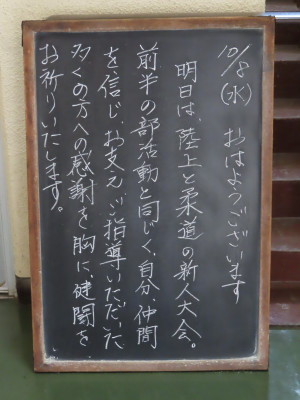 10/8(水) おはようございます
明日は、陸上と柔道の新人大会。
前半の部活動と同じく、自分、仲間
を、信じ、お支え、ご指導いただいた
多くの方への感謝を胸に、健闘を
お祈りいたします。